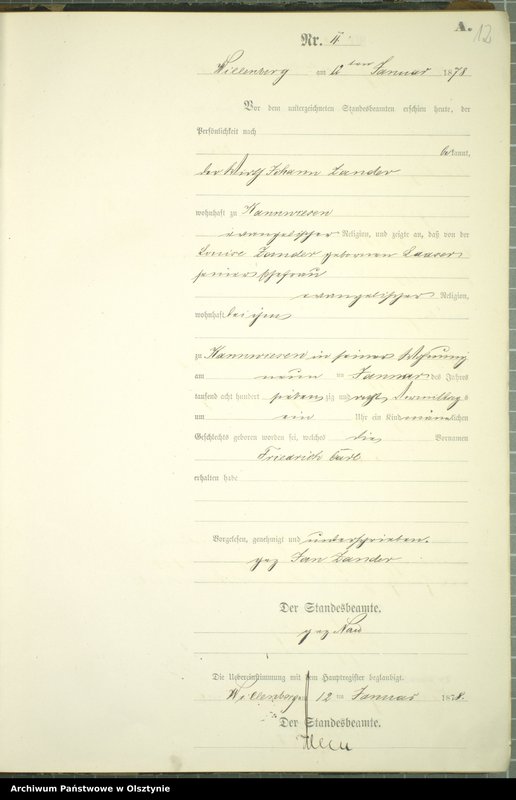 A.
12
Nr. 11
Willenberg am 12 ten Januar 1878
Vor dem unterzeichneten Standesbeamten erschien heute, der
Persönlichkeit nach
bekannt,
der Wirth Johann Zander
wohnhaft zu Kannwiesen
evangelischer Religion, und zeigte an, daß von der
Louise Zander geborenen
seiner Ehefrau
evangelischer Religion,
wohnhaft bei ihm
zu Kannwiesen in seiner Wohnung
am neun ten Januar des Jahres
tausend acht hundert sieben zig und acht Vormittags
um ein Uhr ein Kind männlichen
Geschlechts geboren worden sei, welches die Vornamen
Friedrich Carl
erhalten habe
Vorgelesen, genehmigt und unterschrieben.
gez Jan Zander
Der Standesbeamte.
gez
Die Uebereinstimmung mit dem Hauptregister beglaubigt.
Willenberg am 12 ten Januar 1878.
Der Standesbeamte.
Archiwum Państwowe w Olsztynie